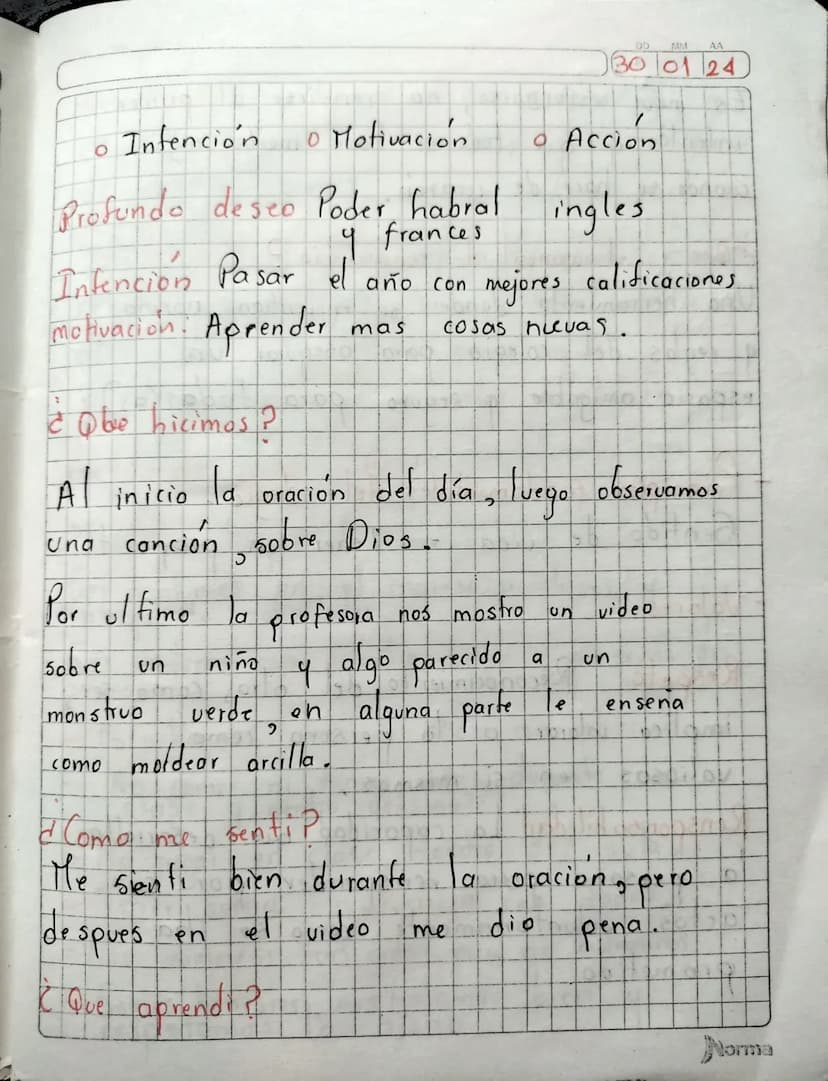 DD MM AA
30 01 24
o Intención o Motivación o Acción
Profundo deseo Poder habral ingles
y frances
Intención Pasar el año con mejores calificaciones
motivación: Aprender mas cosas nuevas.
¿Que hicimos?
Al inicio la oración del día, luego observamos
una canción, sobre Dios.
Por ultimo la profesora nos mostro un video
sobre un niño y algo parecido a un
monstruo verde, en alguna parte le enseña
como moldear arcilla.
¿Como me senti?
Me sienti bien durante la oración, pero
despues en el video me dio pena.
¿Que aprendi?
Norma